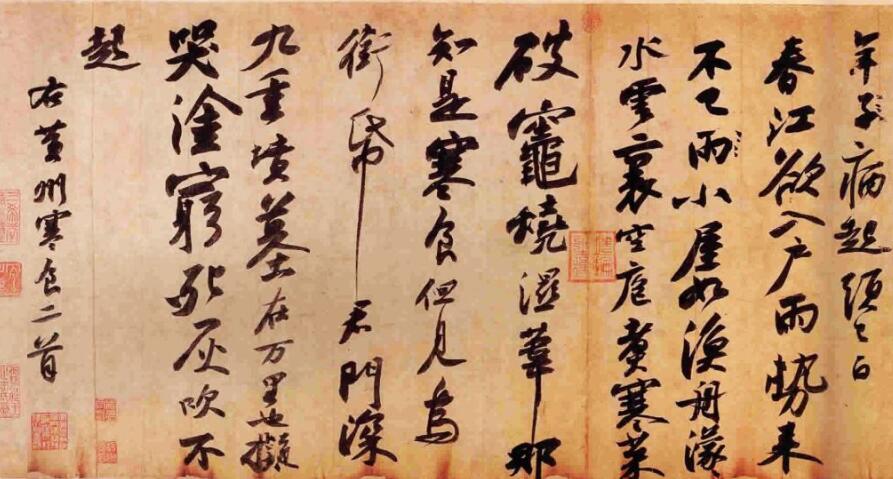 年子病起須已白
春江欲入戶雨勢來
不已雨小屋如漁舟濛々
水雲裏空庖煮寒菜
破竈燒濕葦那
知是寒食但見烏
銜帋君門深
九重墳墓在万里也擬
哭塗窮死灰吹不
起
右黃州寒食二首